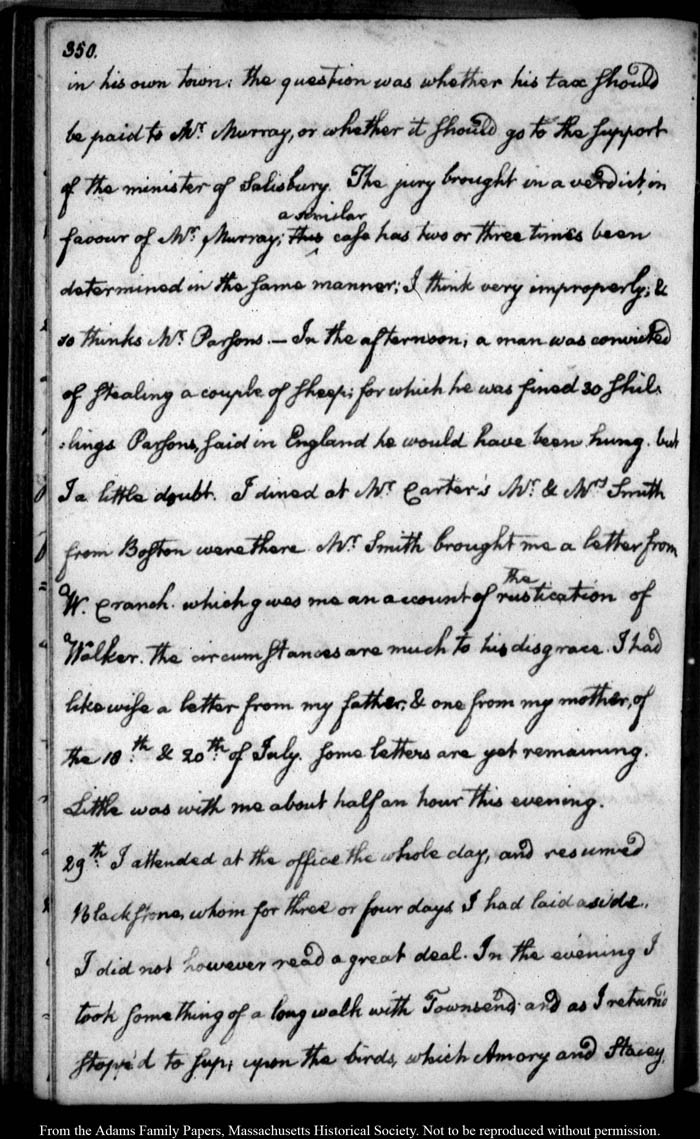 350.
in his own town: the question was whether his tax should
be paid to Mr. Murray, or whether it should go to the support
of the minister of Salisbury. The jury brought in a verdict, in
a similar
favour of Mr. Murray; this case has two or three times been
determined in the same manner; I think very improperly; &
so thinks Mr. Parsons.— In the afternoon; a man was convicted
of stealing a couple of sheep; for which he was fined 30 shil-
:lings Parsons, said in England he would have been hung. but
I a little doubt. I dined at Mr. Carter's Mr. & Mrs. Smith
from Boston were there Mr. Smith brought me a letter from
the
W. Cranch. which gives me an account of rustication of
Walker. the circumstances are much to his disgrace. I had
likewise a letter from my father; & one from my mother, of
the 18th. & 20th. of July. some letters are yet remaining.
Little was with me about half an hour this evening.
29th. I attended at the office the whole day, and resumed
Blackstone, whom for three or four days I had laid aside.
I did not however read a great deal. In the evening I
took something of a long walk with Townsend; and as I return'd
stopp'd to sup, upon the birds, which Amory and Stacey,
From the Adams Family Papers, Massachusetts Historical Society. Not to be reproduced without permission.